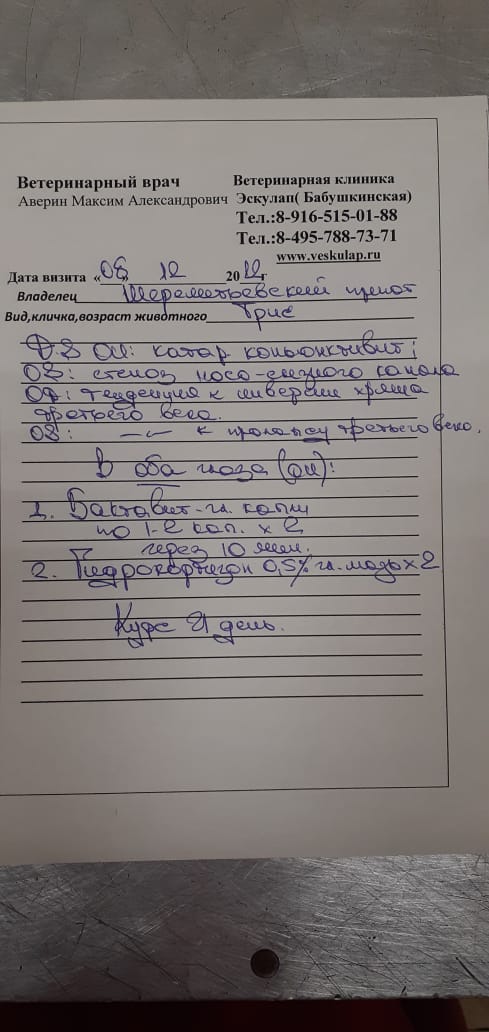 Ветеринарный врач
Аверин Максим Александрович
Ветеринарная клиника
Эскулап( Бабушкинская)
Тел.:8-916-515-01-88
Тел.:8-495-788-73-71
www.veskulap.ru
Дата визита «08» 12 2022г
Владелец Шереметьевский приют
Вид,кличка,возраст животного Трис
D.S OU: катар конъюнктивит;
OS: стеноз носо-слезного канала
OD: тенденция к инверсии хряща
третьего века.
OS: —〃— к пролапсу третьего века.
В оба глаза (OU):
1. Бактавит-гл. капли
по 1-2 кап. х 2
через 10 мин.
2. Гидрокортизон 0,5% гл. мазь х 2
Курс 21 день.